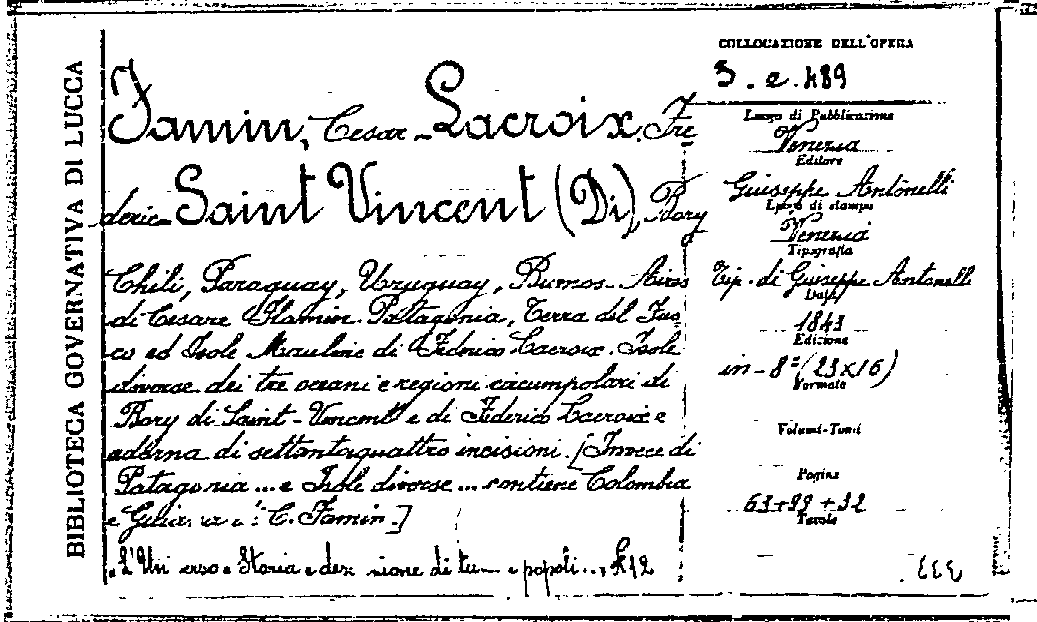 BIBLIOTECA GOVERNATIVA DI LUCCA
Famin, Cesar - Lacroix, Fre
deric - Saint Vincent (Di), Bory
Chili, Paraguay, Uruguay, Buenos-Aires
di Cesare Flamin. Patagonia, Terra del Fuo
co ed Isole Mauline di Federico Lacroix. Isole
diverse dei tre oceani e regioni circumpolari di
Bory di Saint-Vincent e di Federico Lacroix e
adorna di settantaquattro incisioni. [Invece di
Patagonia ... e Isole diverse ... contiene Colombia
e C. Famin.]
L'Uni verso o Storia e des zione di tu e popoli ...,
COLLOCAZIONE DELL'OPERA
3. e. 489
Luogo di Pubblicazione
Venezia
Editore
Giuseppe Antonelli
Luogo di stampa
Venezia
Tipografia
Tip. di Giuseppe Antonelli
Data
1843
Edizione
in-8° (23x16)
Formato
Volumi-Tomi
Pagine
63+99+32
Tavole